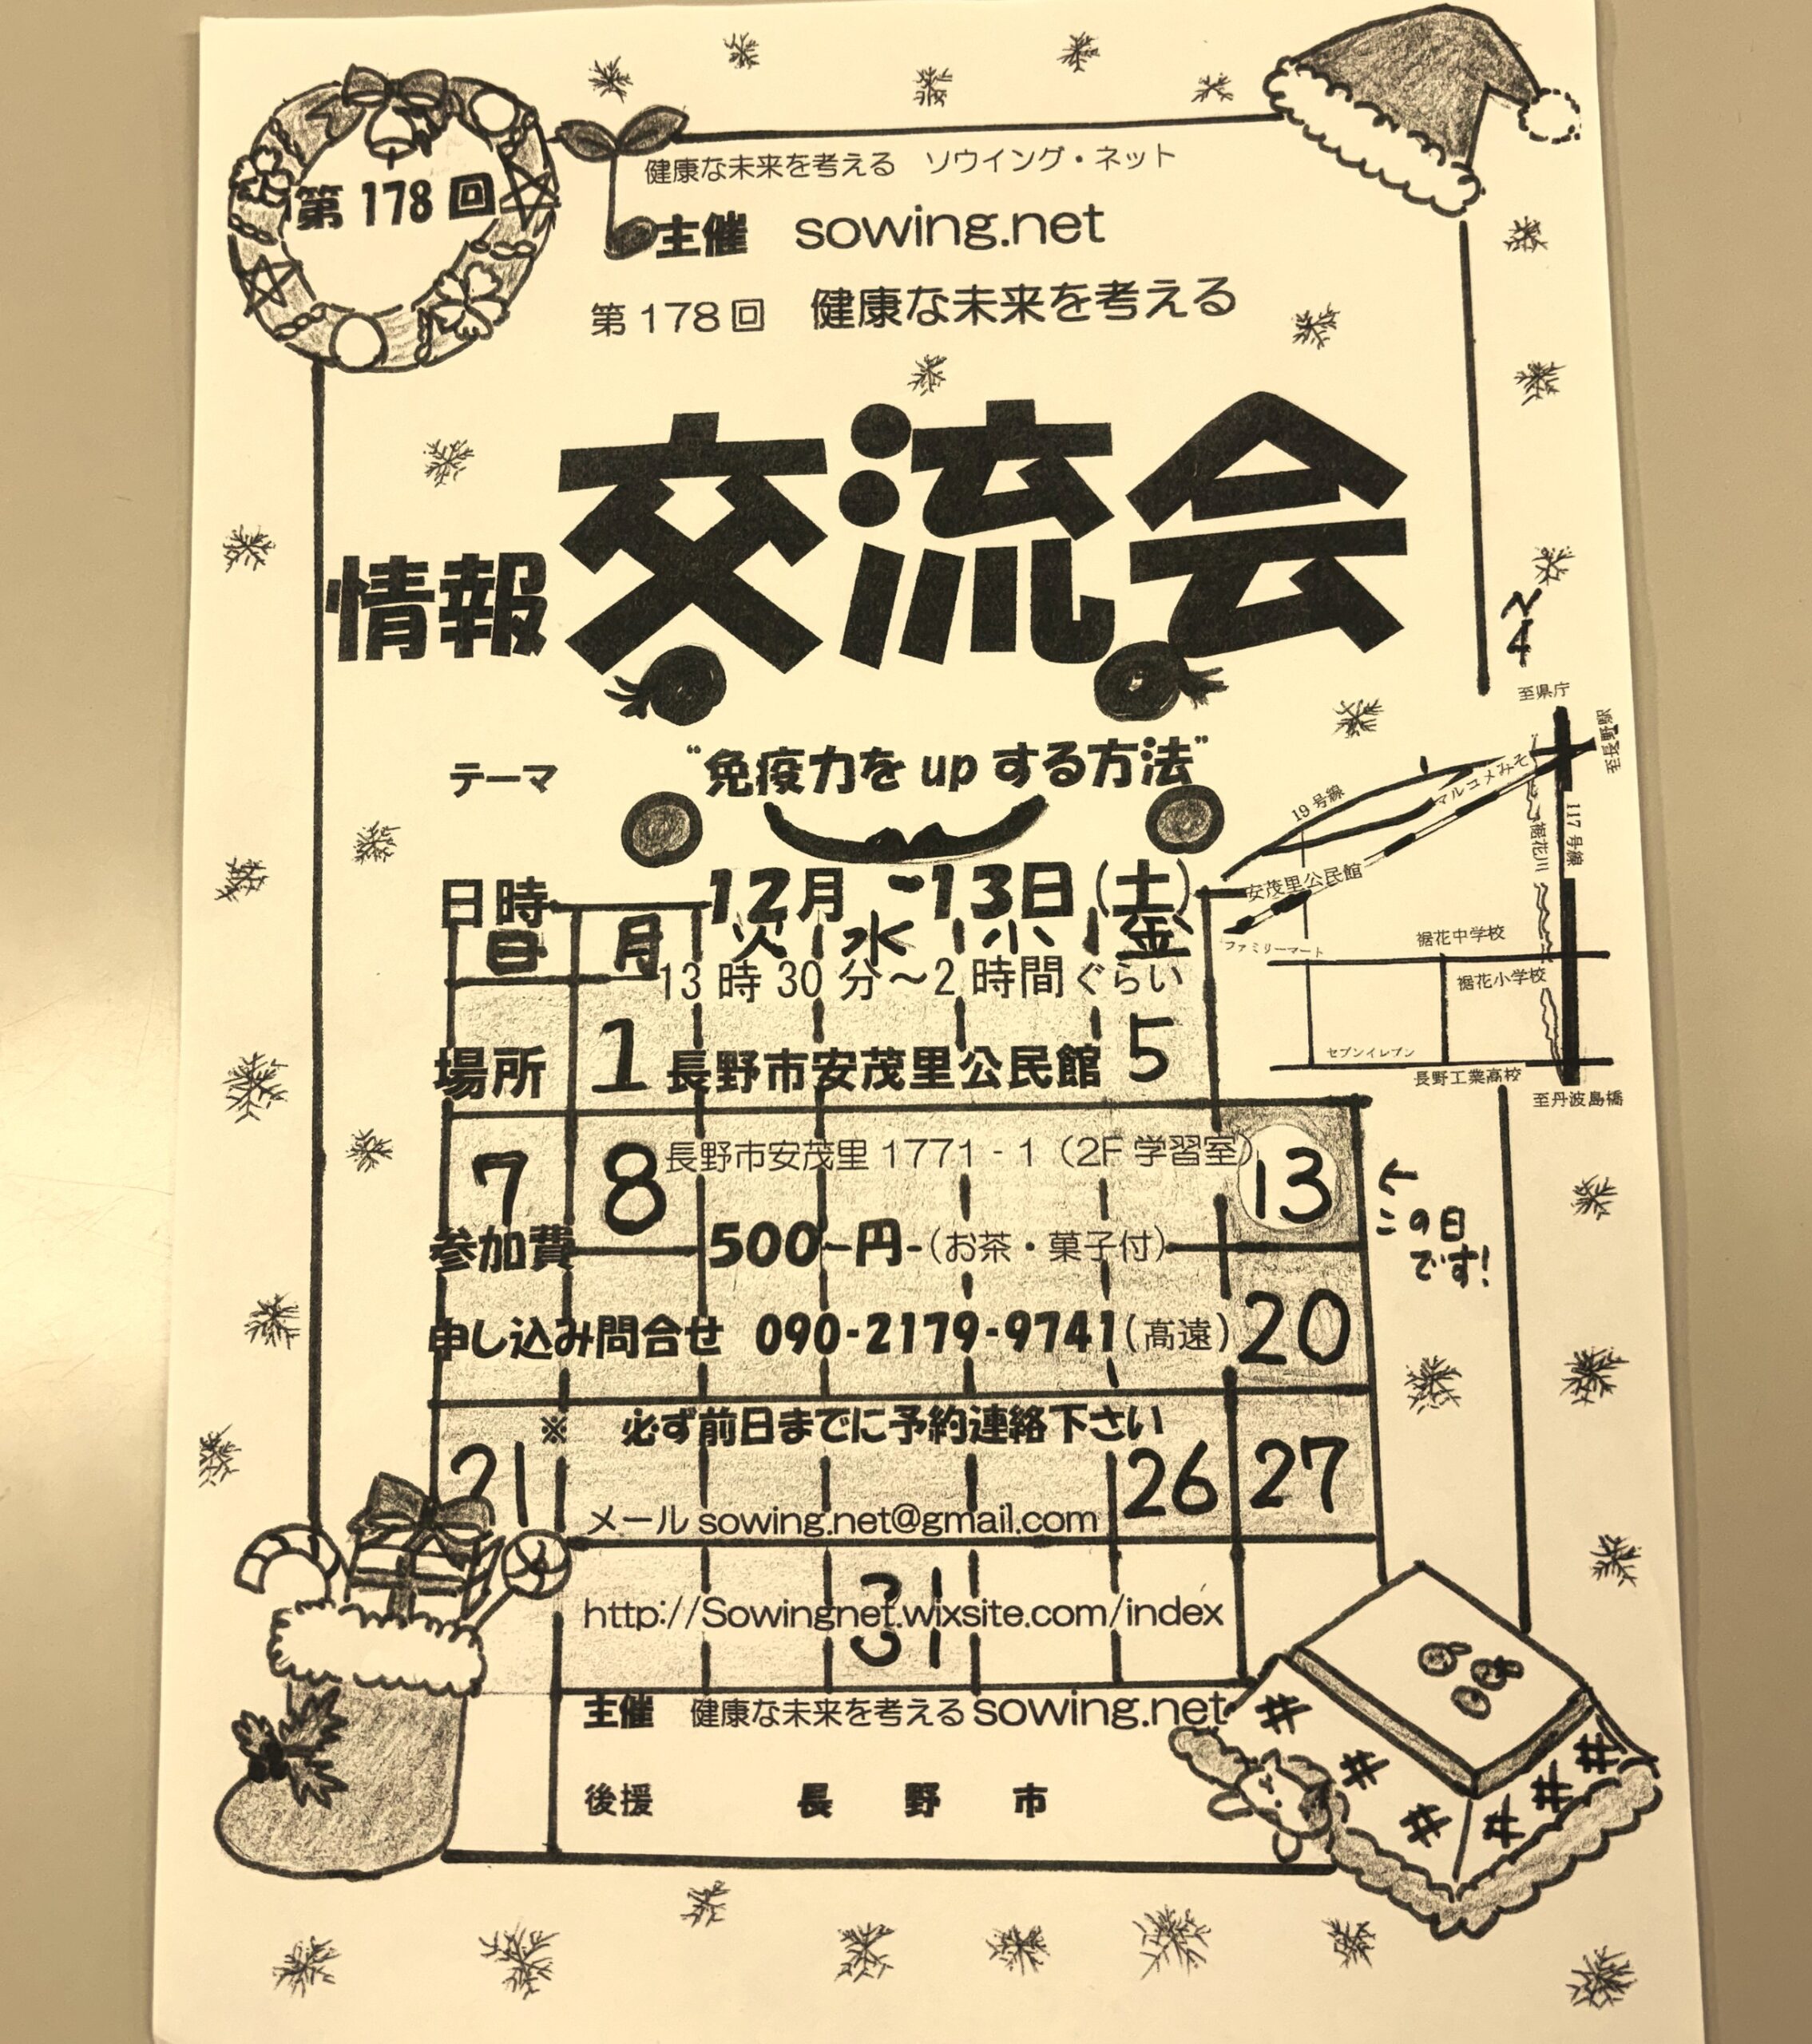 第178回
健康な未来を考える ソウイング・ネット
主催 sowing.net
第178回 健康な未来を考える
情報交流会
テーマ "免疫力をupする方法"
日時 12月 13日(土)
日 月 火 水 金
13時30分〜2時間ぐらい
1 5
場所 長野市安茂里公民館
長野市安茂里1771-1(2F 学習室)
7 8 13
←この日
です!
参加費 500円(お茶・菓子付)
申し込み問合せ 090-2179-9741(高遠)
20
※ 必ず前日までに予約連絡下さい
21 26 27
メール sowing.net@gmail.com
31
http://Sowingnet.wixsite.com/index
主催 健康な未来を考える sowing.net
後援 長野市
N
4
至県庁
至長野駅
19号線
マルコメみそ
117号線
裾花川
安茂里公民館
ファミリーマート
裾花中学校
裾花小学校
セブンイレブン
長野工業高校
至丹波島橋